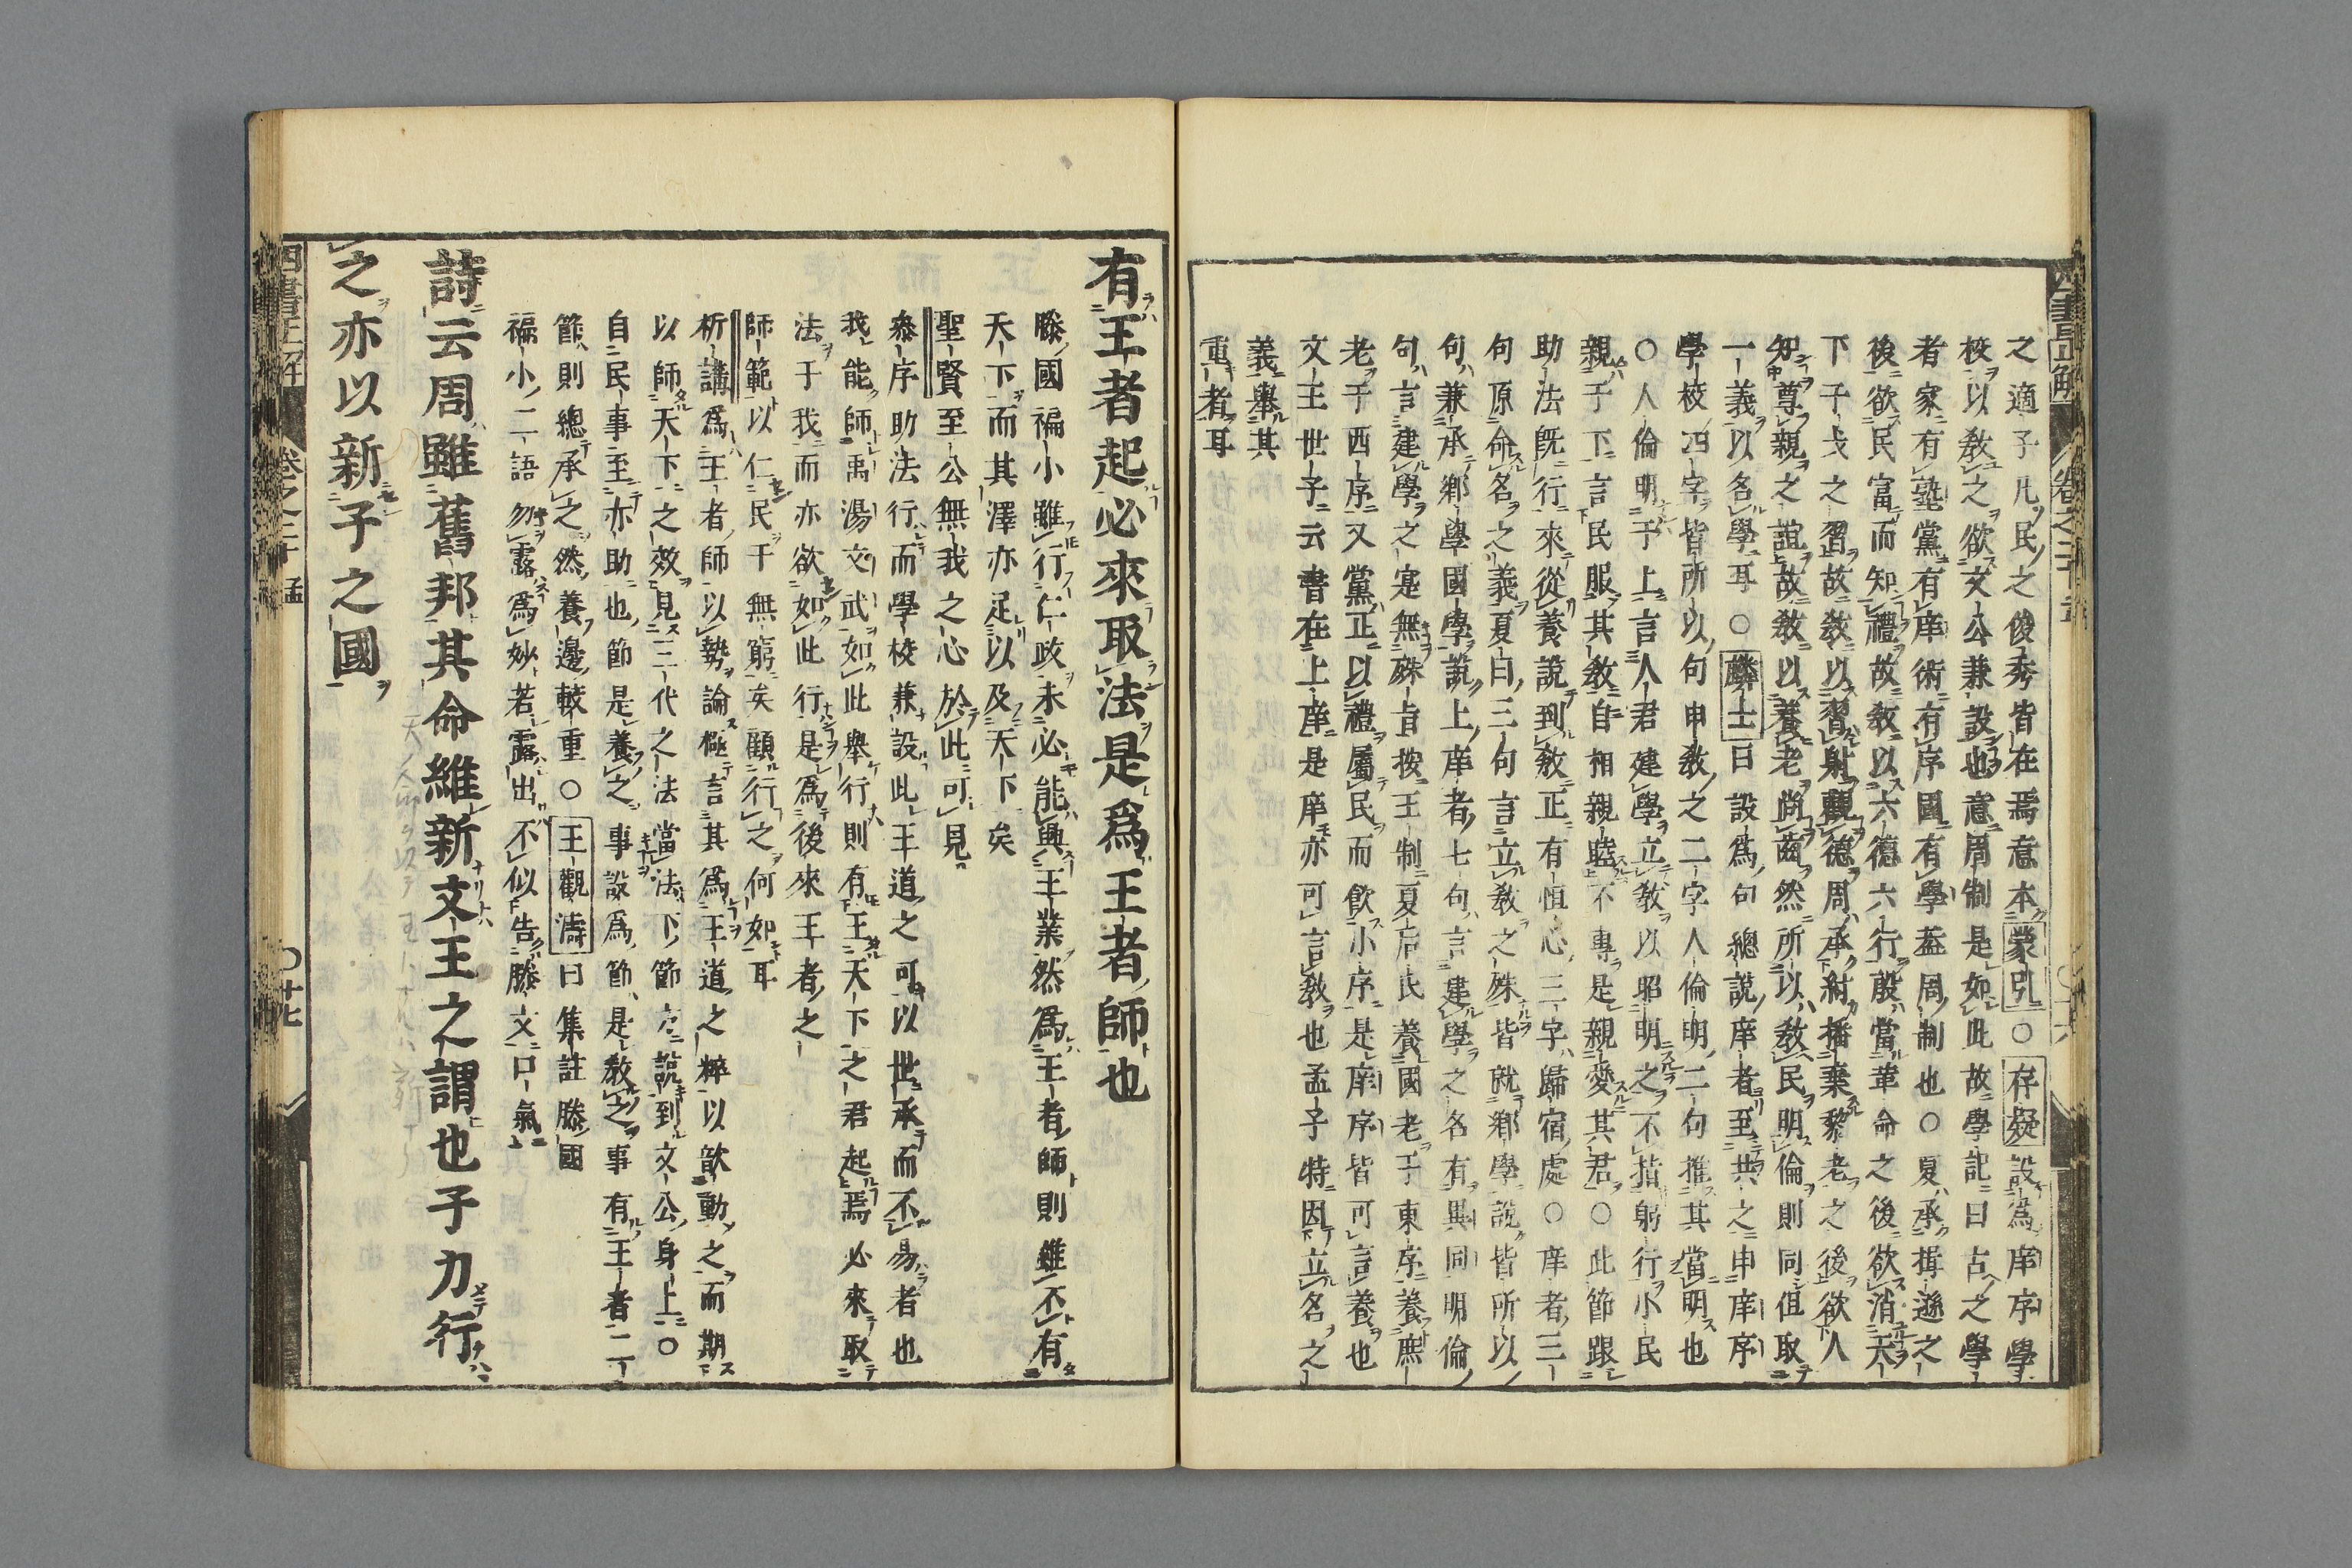 之適子凡民之俊秀皆在焉意本蒙引○存疑設爲庠序學
校以敎之欲文公兼設也意周制是如此故學記曰古之學
者家有塾黨有庠術有序國有學葢周制也○夏承揖遜之
後欲民富而知禮故敎以六德六行殷當革命之後欲消天
下干戈之習故敎以習射觀德周承紂播棄黎老之後欲人
知尊親之誼故敎以養老尚齒然所以敎民明倫則同但取
一義以名學耳○麟士曰設爲句總說庠者至共之申庠序
學校四字皆所以句申敎之二字人倫明二句推其當明也
○人倫明于上言人君建學立敎以昭明之不指躬行小民
親于下言民服其敎自相親睦不專是親愛其君○此節跟
助法旣行來從養說到敎正有恒心三字歸宿處○庠者三
句原命名之義夏曰三句言立敎之殊皆就鄕學說皆所以
句兼承鄕學國學說上庠者七句言建學之名有異同明倫
句言建學之寔無殊旨按王制夏后氏養國老于東序養庶
老于西序又黨正以禮屬民而飮小序是庠序皆可言養也
文王世子云書在上庠是庠亦可言敎也孟子特因立名之
義舉其
重者耳
有王者起必來取法是爲王者師也
滕國褊小雖行仁政未必能興王業然爲王者師則雖不有
天下而其澤亦足以及天下矣
聖賢至公無我之心於此可見
叅序助法行而學校兼設此王道之可以世承而不易者也
我能師禹湯文武如此舉行則有王天下之君起焉必來取
法于我而亦欲如此行是爲後來王者之
師範以仁民于無窮矣顧行之何如耳
析講爲王者師以勢論極言其爲王道之粹以歆動之而期
以師天下之效見三代之法當法下節方說到文公身上○
自民事至亦助也節是養之事設爲節是敎之事有王者二
節則總承之然養邊較重○王觀濤曰集註滕國
褊小二語勿露爲妙若露出不似告滕文口氣
詩云周雖舊邦其命維新文王之謂也子力行
之亦以新子之國
四書正解 卷之二十 孟 ○廿七